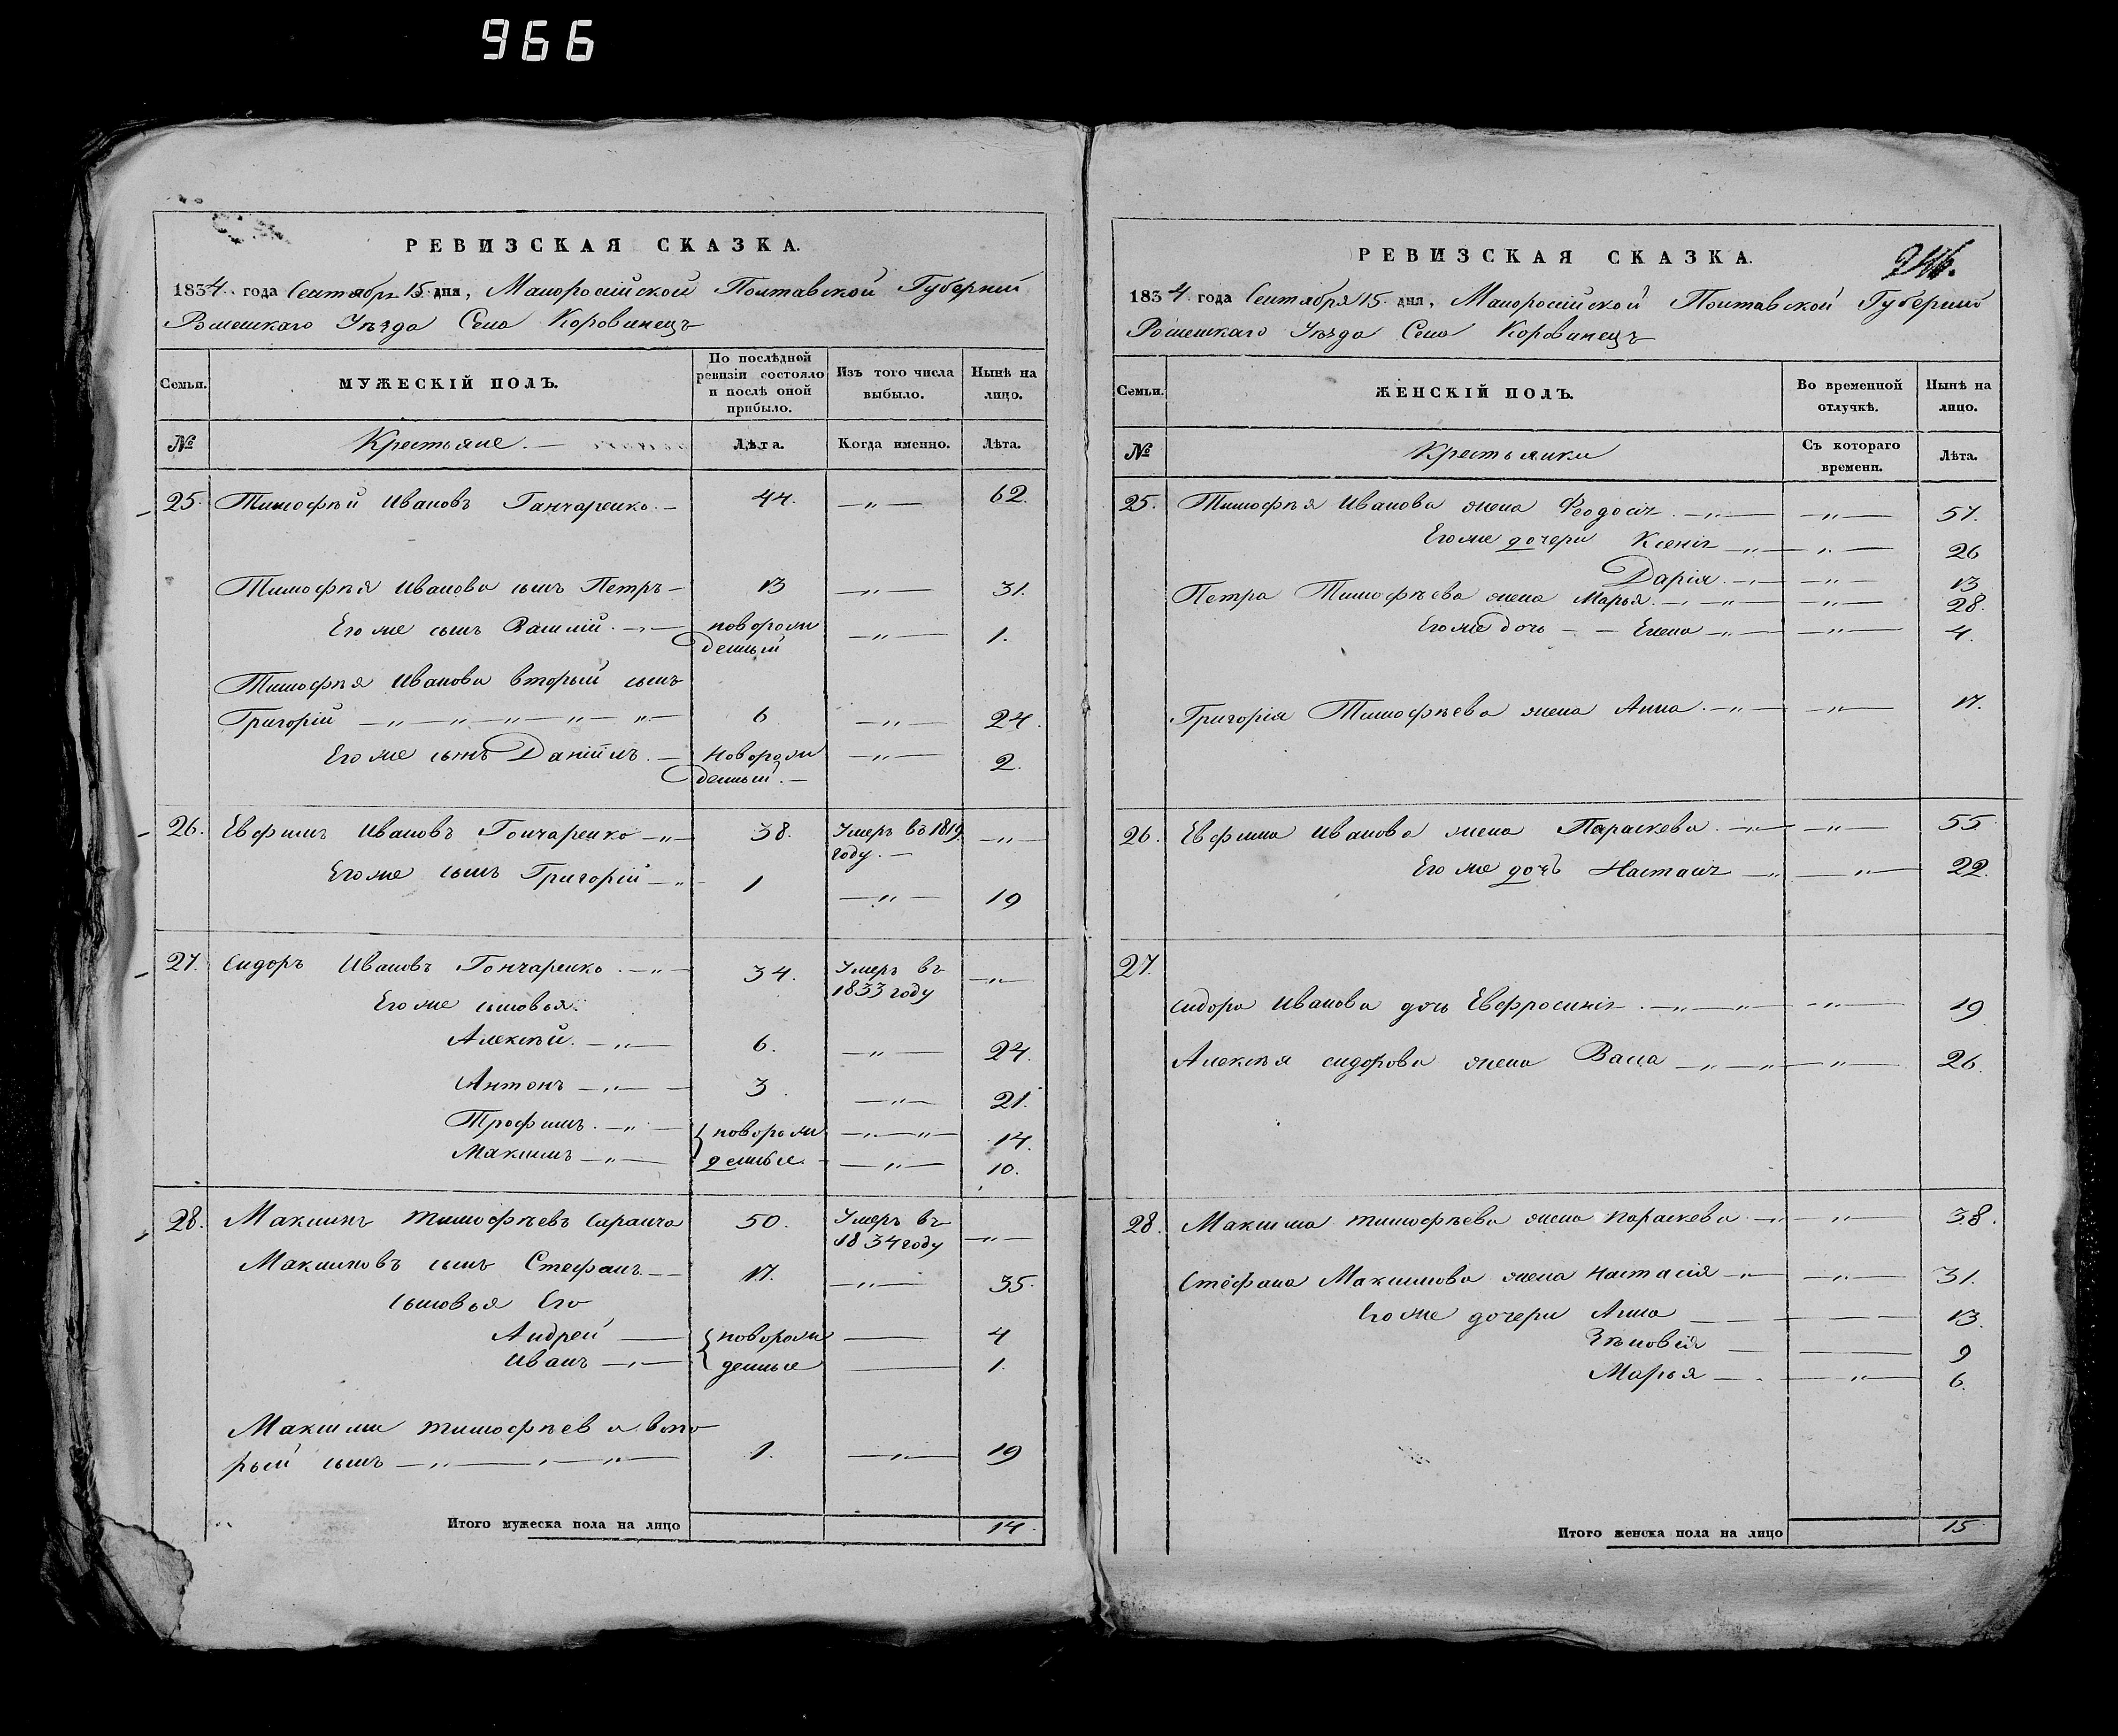 966
РЕВИЗСКАЯ СКАЗКА.
1834 года Сентября 15 дня, Малоросійской Полтавской Губерніи
Роменскаго Уѣзда Села Коровинецъ
Семьи.
МУЖЕСКІЙ ПОЛЪ.
По послѣдней ревизіи состояло и послѣ оной прибыло.
Изъ того числа выбыло.
Нынѣ на лицо.
№ Крестьяне. — Лѣта. Когда именно. Лѣта.
25. Тимофѣй Ивановъ Ганчаренко. — 44. —„— 62.
Тимофѣя Иванова сынъ Петръ — 13 —„— 31.
Его же сынъ Василій. —„— новорож
денный —„— 1.
Тимофѣя Иванова вторый сынъ
Григорій —„—„—„—„—„— 6 —„— 24.
Его же сынъ Даніилъ. — новорож —„— 2.
денный. —
26. Евфимъ Ивановъ Гончаренко —„— 38. Умеръ въ 1819 —„—
году. —
Его же сынъ Григорій —„— 1 —„— 19
27. Сидоръ Ивановъ Гончаренко. —„— 34. Умеръ въ —„—
1833 году
Его же сыновья:
Алексѣй. —„— 6. —„— 24.
Антонъ —„— 3. —„— 21.
Трофимъ. —„— новорож —„—„— 14.
Максимъ —„— денные. —„— 10.
28. Максимъ Тимофѣевъ Саранча 50. Умеръ въ —„—
1834 году
Максимовъ сынъ Стефанъ. — 17. —„— 35.
Сыновья Его
Андрей — новорож — 4
Иванъ —„— денные — 1.
Максима Тимофѣева вто
рый сынъ —„—„—„— 1. —„— 19
Итого мужеска пола на лицо 14.
РЕВИЗСКАЯ СКАЗКА.
1834 года Сентября 15 дня, Малоросійской Полтавской Губерніи
Роменскаго Уѣзда Села Коровинецъ
Семьи.
ЖЕНСКІЙ ПОЛЪ.
Во временной отлучкѣ.
Нынѣ на лицо.
№ Крестьянки Съ котораго времени. Лѣта.
25. Тимофѣя Иванова жена Феодосія. —„— —„— 57.
Его же дочери Ксенія —„— —„— 26
Дарія. —„— —„— 13
Петра Тимофѣева жена Марья. —„—„— —„— 28.
Его же дочь — — Елена —„— —„— 4.
Григорія Тимофѣева жена Анна. —„— —„— 17.
26. Евфима Иванова жена Параскева. —„— —„— 55
Его же дочь Настасія —„— —„— 22.
27.
Сидора Иванова дочь Евфросинія. —„—„— —„— 19
Алексѣя Сидорова жена Васа —„—„— —„— 26.
28. Максима Тимофѣева жена Параскева —„— —„— 38.
Стефана Максимова жена Настасія —„— —„— 31.
Его же дочери Анна — — 13.
Зѣновія — — 9
Марья — —„— 6.
Итого женска пола на лицо 15